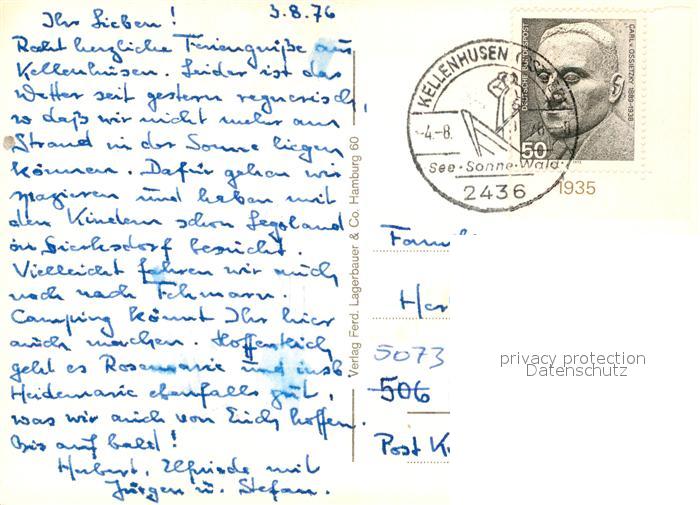 Ihr Lieben! 3.8.76
Recht herzliche Feriengrüße aus
Kellenhusen. Leider ist das
Wetter seit gestern regnerisch,
so daß wir nicht mehr am
Strand in der Sonne liegen
können. Dafür gehen wir
spazieren und haben mit
den Kindern schon Legoland
in Sierksdorf besucht.
Vielleicht fahren wir auch
noch nach Fehmarn.
Camping könnt Ihr hier
auch machen. Hoffentlich
geht es Rosemarie und insb.
Heidemarie ebenfalls gut,
was wir auch von Euch hoffen.
Bis auf bald!
Hubert, Elfriede mit
Jürgen u. Stefan.
Verlag Ferd. Lagerbauer & Co. Hamburg 60
KELLENHUSEN
-4.-8.
See·Sonne·Wald
2436
DEUTSCHE BUNDESPOST
CARL v. OSSIETZKY 1889-1938
50
1935
Fam
Her
5073
506
Post K
privacy protection
Datenschutz